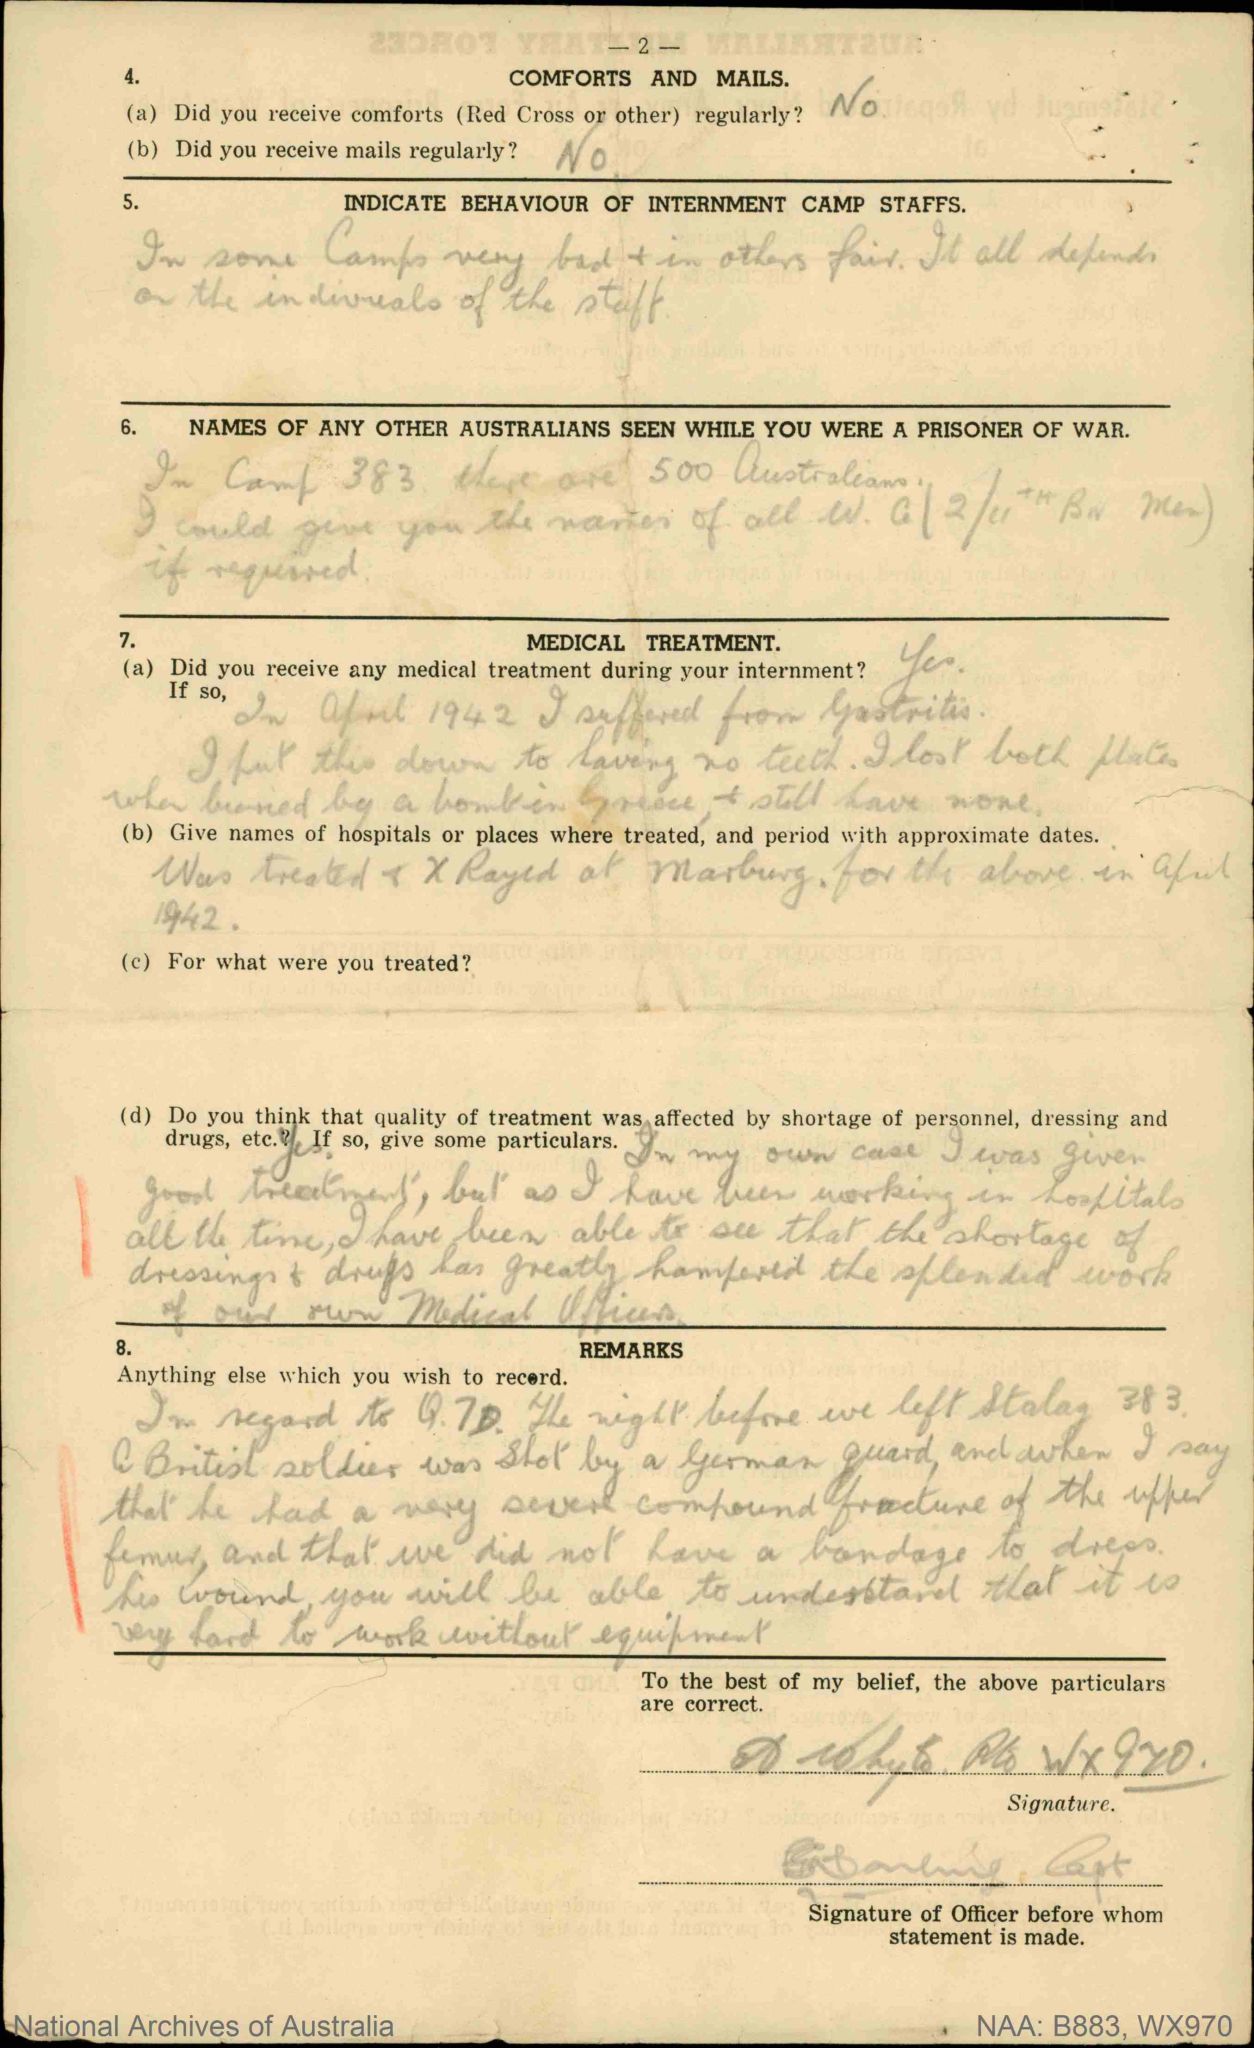 — 2 —
4. COMFORTS AND MAILS.
(a) Did you receive comforts (Red Cross or other) regularly? No.
(b) Did you receive mails regularly? No.
5. INDICATE BEHAVIOUR OF INTERNMENT CAMP STAFFS.
In some Camps very bad & in others fair. It all depends
on the indivuals of the staff.
6. NAMES OF ANY OTHER AUSTRALIANS SEEN WHILE YOU WERE A PRISONER OF WAR.
In Camp 383. there are 500 Australians.
I could give you the names of all W. A (2/11TH Bn Men)
if required.
7. MEDICAL TREATMENT.
(a) Did you receive any medical treatment during your internment? Yes.
If so,
In April 1942 I suffered from Gastritis.
I put this down to having no teeth. I lost both plates
when buried by a bomb in Greece, & still have none.
(b) Give names of hospitals or places where treated, and period with approximate dates.
Was treated & X Rayed at Marburg. for the above in April
1942.
(c) For what were you treated?
(d) Do you think that quality of treatment was affected by shortage of personnel, dressing and
drugs, etc.? Yes. If so, give some particulars. In my own case I was given
good treatment, but as I have been working in hospitals
all the time, I have been able to see that the shortage of
dressings & drugs has greatly hampered the splended work
of our own Medical Officers.
8. REMARKS
Anything else which you wish to record.
In regard to Q. 7D. The night before we left Stalag 383.
A British soldier was shot by a German guard, and when I say
that he had a very severe compound fracture of the upper
femur, and that we did not have a bandage to dress.
his wound, you will be able to understand that it is
very hard to work without equipment
To the best of my belief, the above particulars
are correct.
D Whyte. Pte WX970.
Signature.
Capt
Signature of Officer before whom
statement is made.
National Archives of Australia
NAA: B883, WX970